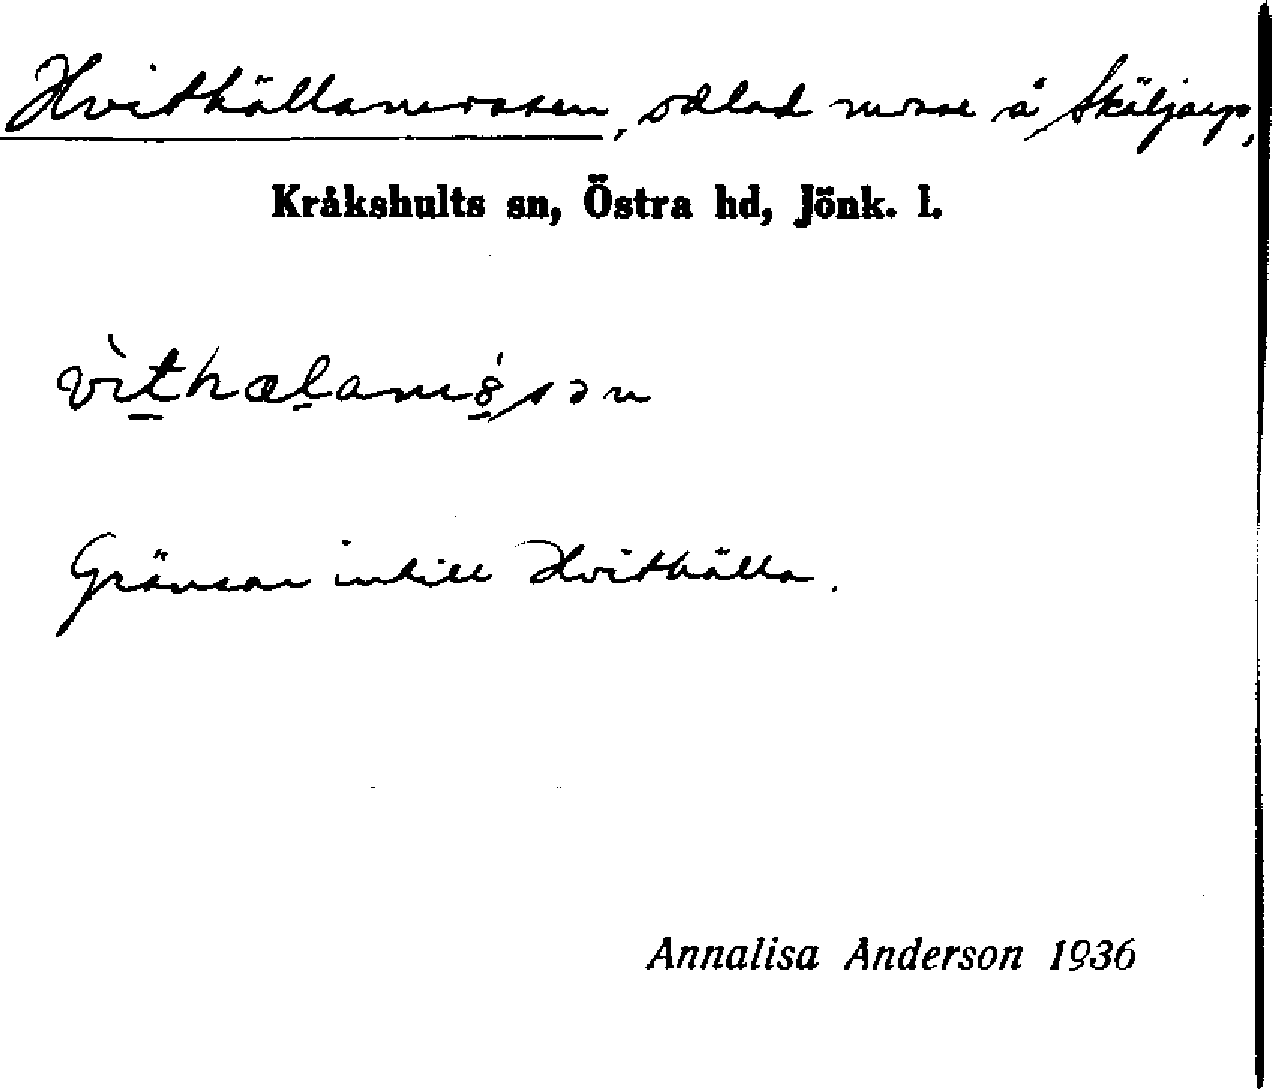 Hvithällamossen, odlad mosse å Skäljarp,
Kråkshults sn, Östra hd, Jönk. l.
Gränsar intill Hvithälla.
Annalisa Anderson 1936